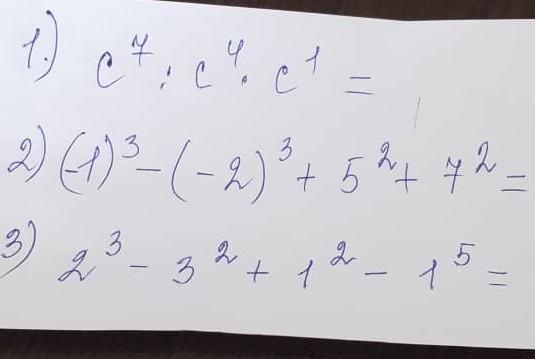 1.) c⁷ : c⁴ · c¹ =
2) (-1)³ - (-2)³ + 5² + 7² =
3) 2³ - 3² + 1² - 1⁵ =